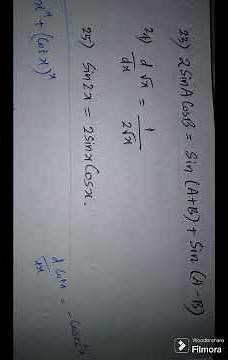 23) 2SinACosB = Sin (A+B) + Sin (A-B)
24) d/dx √x = 1/2√x
25) Sin2x = 2sinxCosx.
x^x + (Cotx)^x
d/dx cotx = -Cosec²x
Wondershare
Filmora